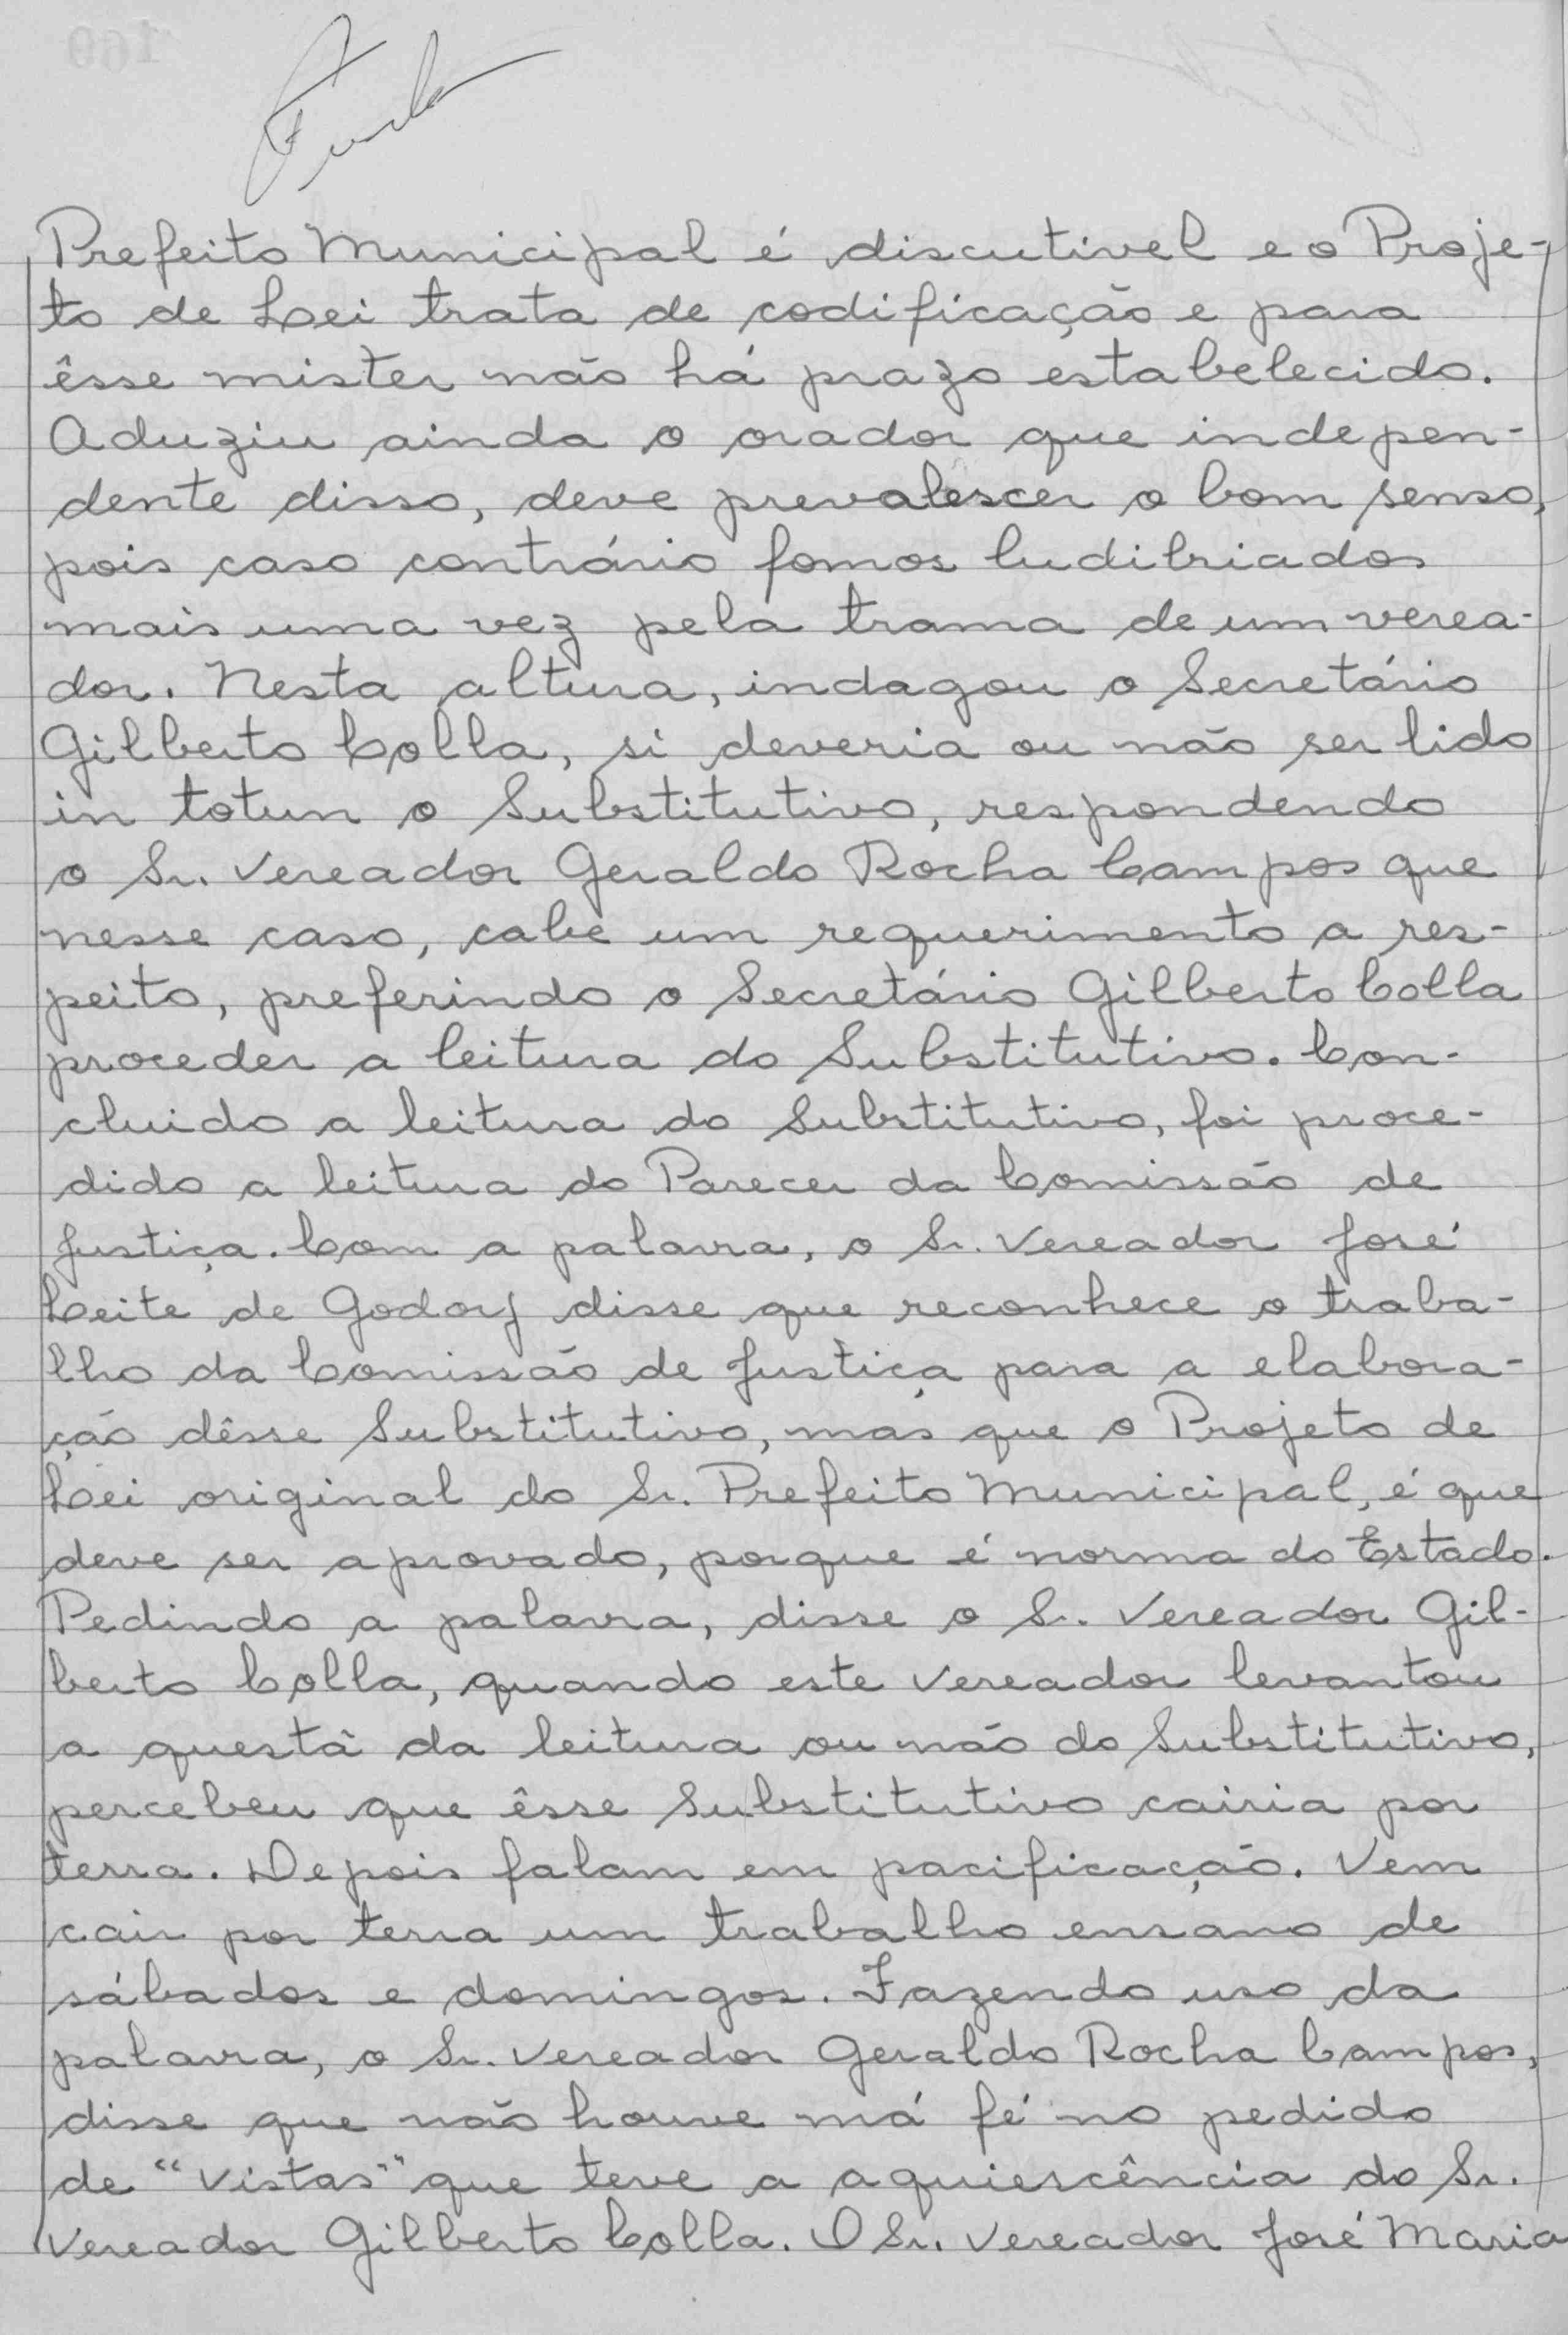 Prefeito Municipal é discutivel e o Proje-
to de Lei trata de codificação e para
êsse mister não há prazo estabelecido.
Aduziu ainda o orador que indepen-
dente disso, deve prevalescer o bom senso,
pois caso contrário fomos ludibriados
mais uma vez pela trama de um verea-
dor. Nesta altura, indagou o Secretário
Gilberto Colla, si deveria ou não ser lido
in totun o Substitutivo, respondendo
o Sr. Vereador Geraldo Rocha Campos que
nesse caso, cabe um requerimento a res-
peito, preferindo o Secretário Gilberto Colla
proceder a leitura do Substitutivo. Con-
cluido a leitura do Substitutivo, foi proce-
dido a leitura do Parecer da Comissão de
Justiça. Com a palavra, o Sr. Vereador José
Leite de Godoy disse que reconhece o traba-
lho da Comissão de Justiça para a elabora-
ção dêsse Substitutivo, mas que o Projeto de
Lei original do Sr. Prefeito Municipal, é que
deve ser aprovado, porque é norma do Estado.
Pedindo a palavra, disse o Sr. Vereador Gil-
berto Colla, quando este Vereador levantou
a questã da leitura ou não do Substitutivo,
percebeu que êsse Substitutivo cairia por
terra. Depois falam em pacificação. Vem
cair por terra um trabalho ensano de
sábados e domingos. Fazendo uso da
palavra, o Sr. Vereador Geraldo Rocha Campos,
disse que não houve má fé no pedido
de "Vistas" que teve a aquiescência do Sr.
Vereador Gilberto Colla. O Sr. Vereador José Maria